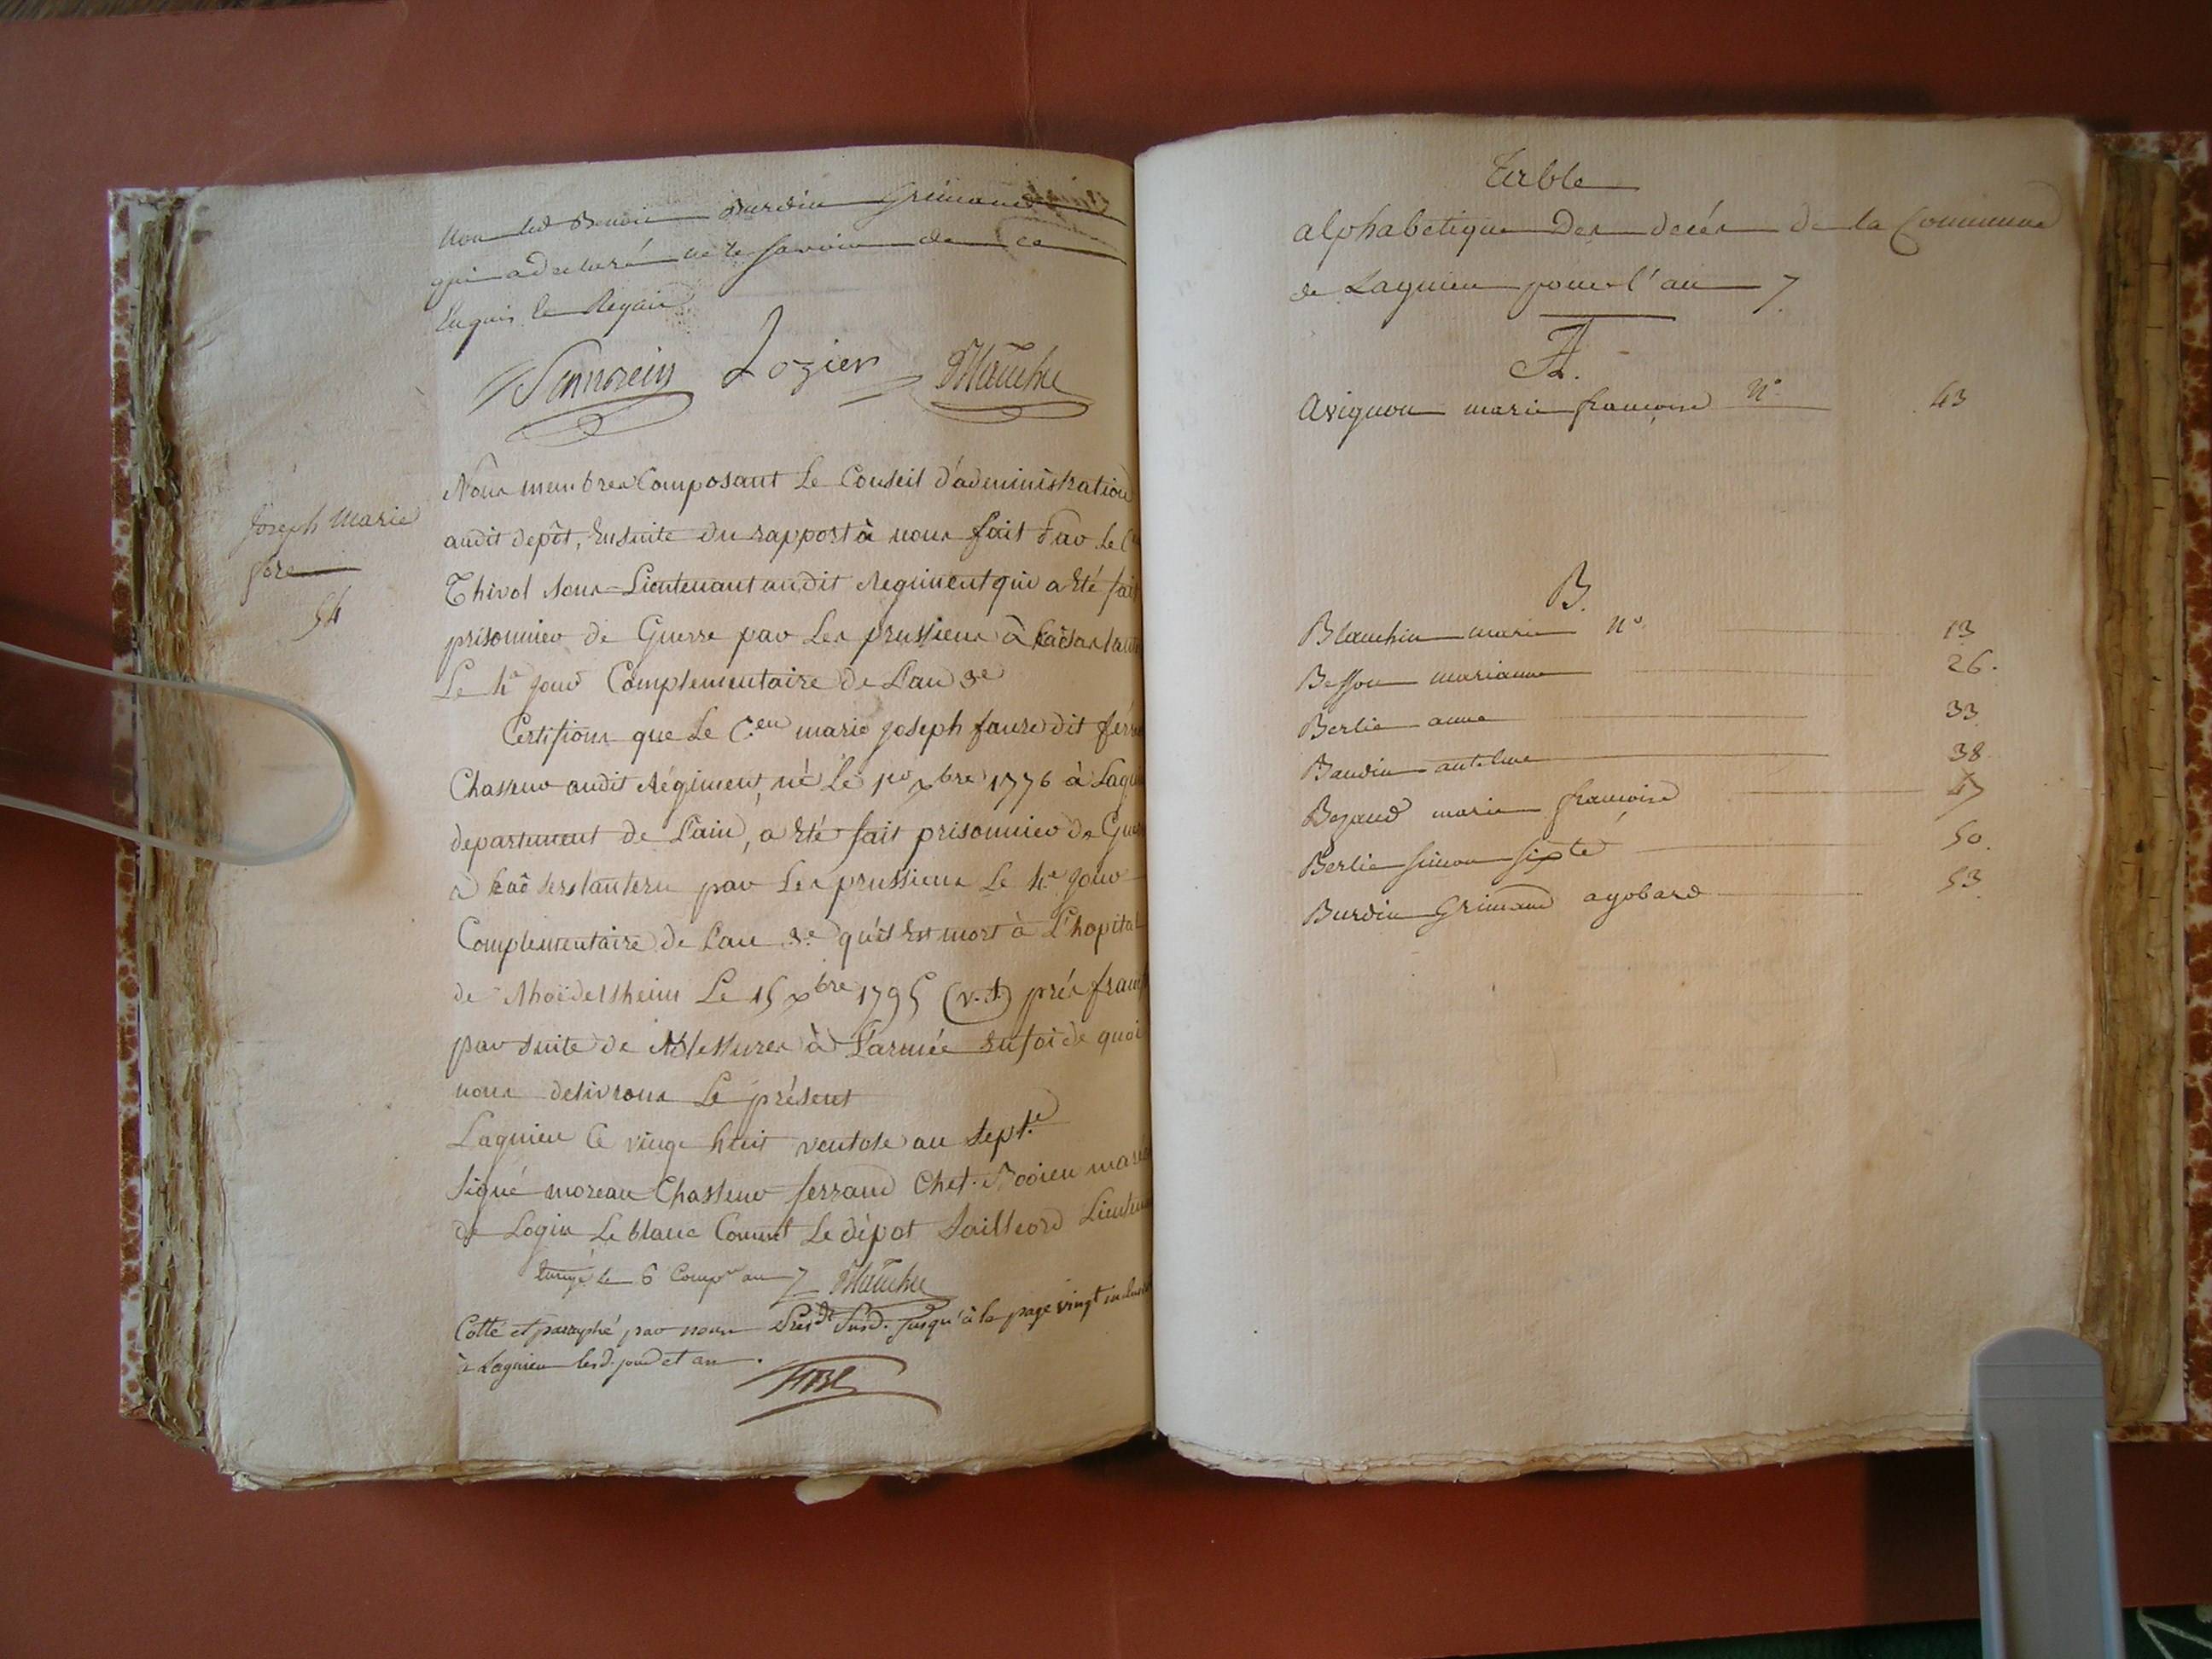 non led Benoit Burdin Grimaud
qui a declaré ne le savoir de ce
Enquis Le Requis
Lozier Blanchu
Joseph Marie
fore
54
Nous membres Composant Le Conseil d'administration
audit depôt, Ensuite du rapport à nous fait Par Le C
Thivol Sous-Lieutenant audit Regiment qui a été fait
prisonnier de Guerre par Les prussiens à
Le 4e jour Complementaire de L'an 3e
Certifions que Le C.en marie joseph faure dit
Chasseur audit Régiment, né Le 1er xbre 1776 à Lagni
departement de L'ain, a été fait prisonnier de Guer
à par Les prussiens Le 4e jour
Complementaire de L'an 3e qu'il Est mort à L'hopital
de Rhoidelsheim Le 15 xbre 1795 (v.s) prés franf
par suite de Blessures à L'armée En foi de quoi
nous delivrons Le présent
Lagnieu Ce vingt huit ventose an Sept.e
Signé moreau Chasseur ferrand Chef
de Login Le blanc Commt Le dépot Lieuten
le 6 Comp.re an 7 Blanchu
Cotté et paraphé par nous Présdt Susd. jusqu'à la page vingt
à Lagnieu lesd. jour et an.
Table
alphabetique Des decés de la Commune
de Lagnieu pour l'an 7.
A.
Avignon marie francoise N° 43
B.
Blanchin marie n° 13
Besson marianne 26.
Berlie anne 33
Baudin antelme 38
Bozaud marie francoise 47
Berlie simon sixte 50.
Burdin Grimaud agobard 53